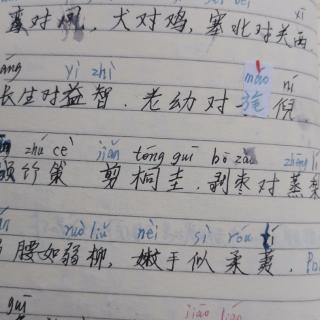 xī
对凤,犬对鸡,塞北对关西
áng yì zhì máo ní
长生对益智.老幼对旄倪
zhú cè jiǎn tóng guī bō zǎo
竹策 剪桐圭,剥枣对蒸梨
ruò liǔ nèn sì róu tí
腰如弱柳,嫩手似柔荑.
guī